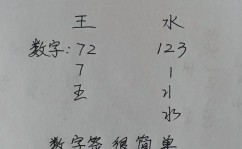 王 水
数字:72 123
7 1
五 刂
水
数字签很简单